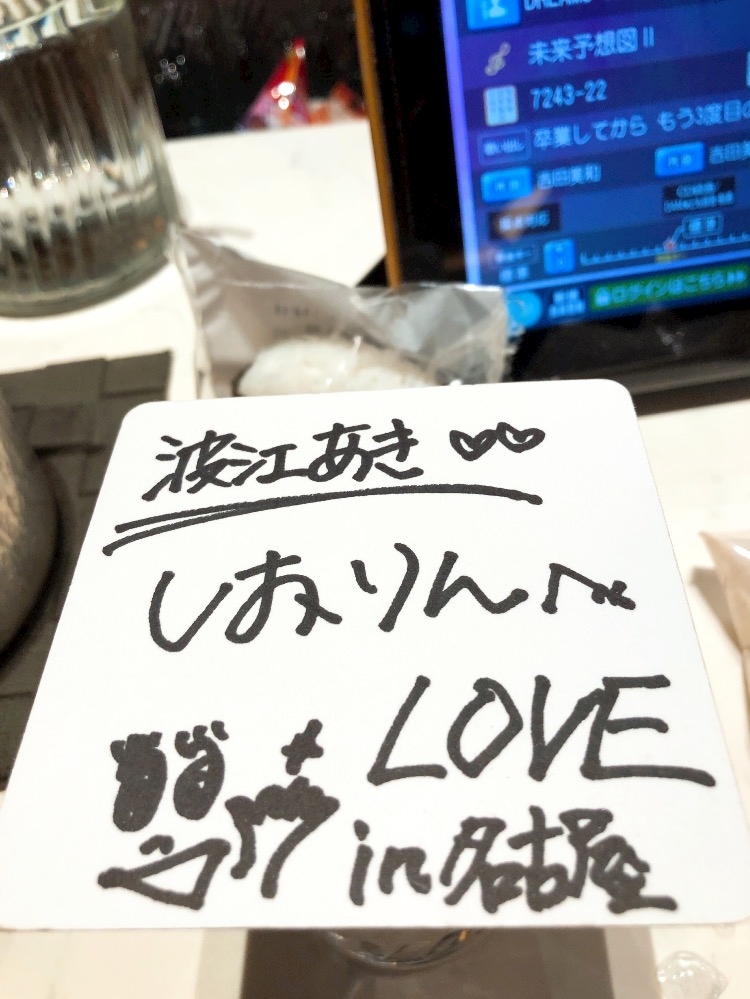 DREAMS
未来予想図Ⅱ
7243-22
歌い出し 卒業してから もう3度目
吉田美和
吉田美
ログインはこちら
波江あき♡♡
しおりん♪
LOVE
in名古屋